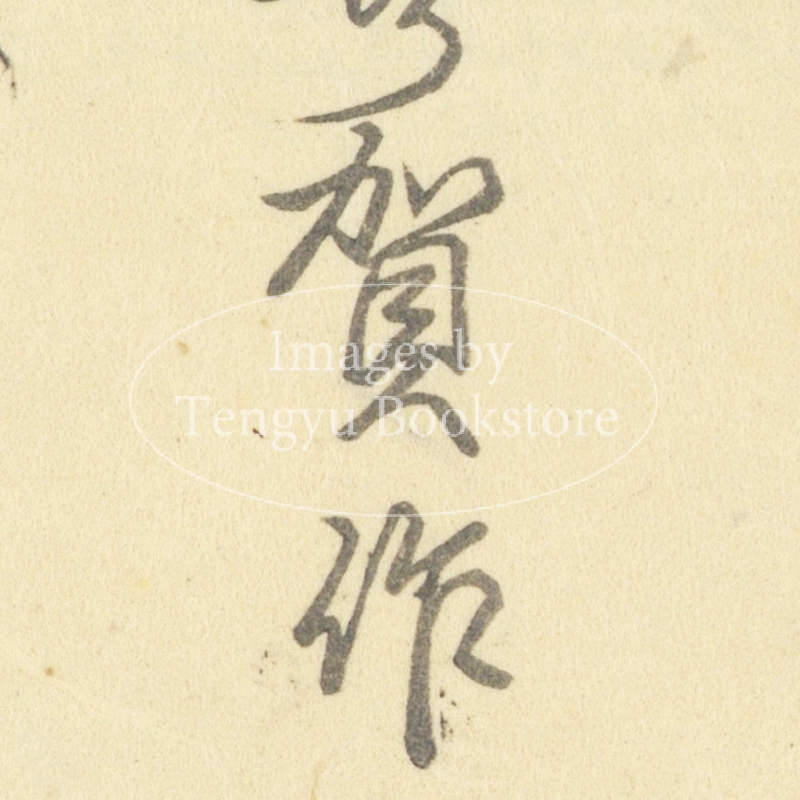 賀作
Images by
Tengyu Bookstore